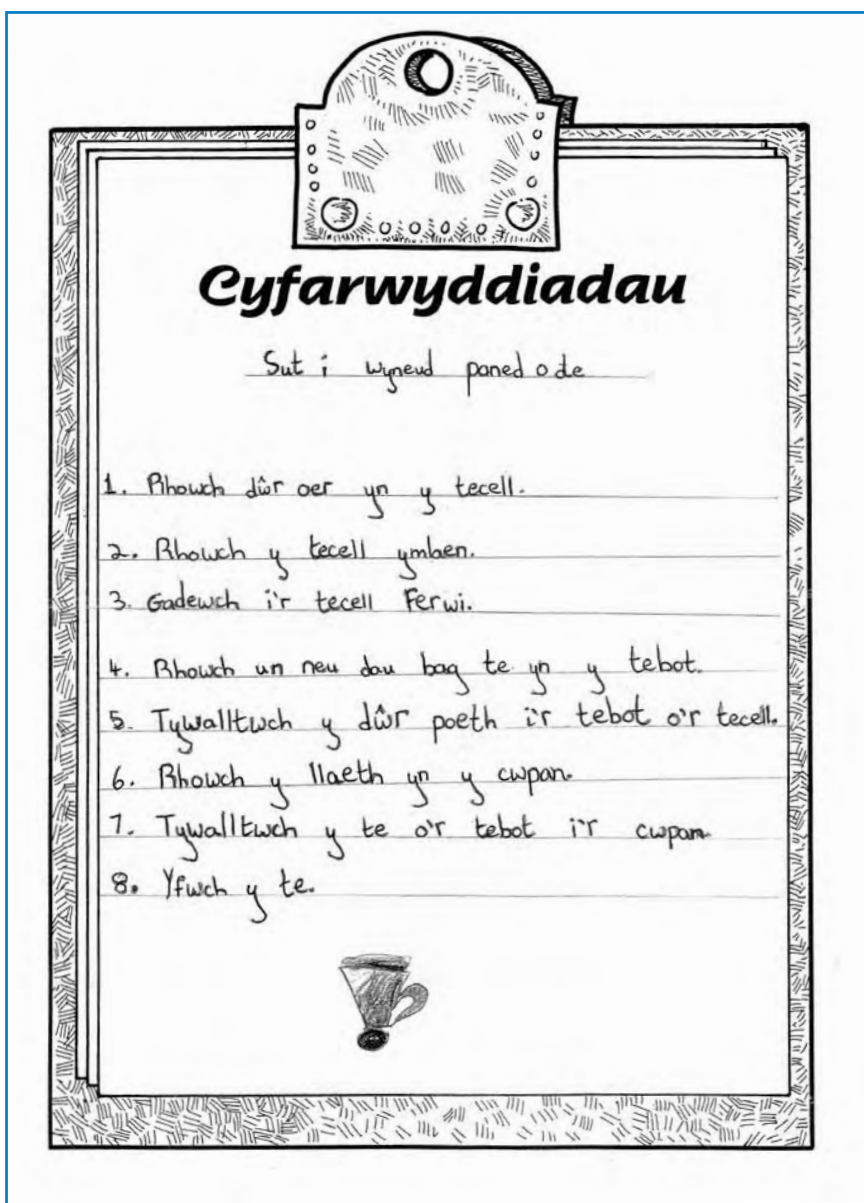 Cyfarwyddiadau
Sut i wyneud paned o de
1. Rhowch dŵr oer yn y tecell.
2. Rhowch y tecell ymlaen.
3. Gadewch i'r tecell Ferwi.
4. Rhowch un neu dau bag te yn y tebot.
5. Tywalltwch y dŵr poeth i'r tebot o'r tecell.
6. Rhowch y llaeth yn y cwpan.
7. Tywalltwch y te o'r tebot i'r cwpan
8. Yfwch y te.